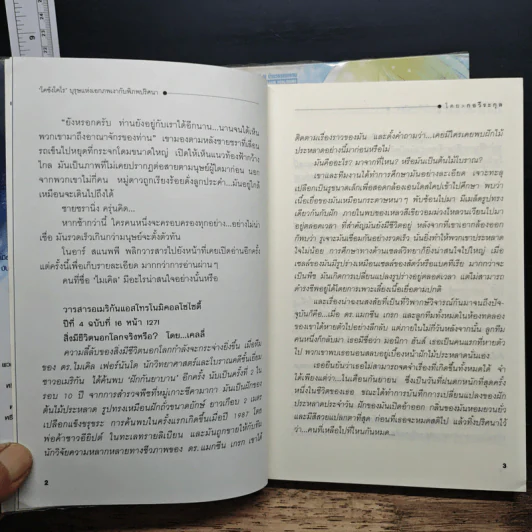 "ยังหรอกครับ ท่านยังอยู่กับเราได้อีกนาน...นานจนได้เห็น
พวกเขามาถึงอาณาจักรของท่าน" เขามองตามหลังชายชราที่เลื่อน
รถเข็นไปหยุดที่กระจกโตมขนาดใหญ่ เปิดให้เห็นแนวท้องฟ้ากว้าง
ไกล มันเป็นภาพที่ไม่เคยปรากฏต่อสายตามนุษย์ผู้ใดมาก่อน นอก
จากพวกเขาไม่กี่คน หมู่ดาวถูกเรียงร้อยดั่งลูกประคำ...มันอยู่ใกล้
เหมือนจะเดินไปถึงได้
ชายชรานิ่ง ครุ่นคิด...
หากช้ากว่านี้ ใครคนหนึ่งจะครอบครองทุกอย่าง...อย่างไม่น่า
เชื่อ มันรวดเร็วเกินกว่ามนุษย์จะตั้งตัวทัน
โนอาร์ สแนพพี พลิกวารสารไปยังหน้าที่เคยเปิดอ่านอีกครั้ง
แต่ครั้งนี้เพื่อเก็บรายละเอียด มากกว่าการอ่านผ่าน ๆ
คนที่ชื่อ 'ไมเคิล' มีอะไรน่าสนใจอย่างนั้นหรือ
วารสารอเมริกันแอสโทรโนมิคอลโซไซตี้
ปีที่ 4 ฉบับที่ 16 หน้า 1271
สิ่งมีชีวิตนอกโลกจริงหรือ? โดย...เคลลี่
ความลี้ลับของสิ่งมีชีวิตนอกโลกกำลังจะกระจ่างยิ่งขึ้น เมื่อทีม
ของ ดร.ไมเคิล เฟอร์นันโด นักวิทยาศาสตร์และโบราณคดีชื่อเยี่ยม
ชาวอเมริกัน ได้ค้นพบ 'ผักกันยาบาน' อีกครั้ง นับเป็นครั้งที่ 2 ใน
รอบ 10 ปี จากการสำรวจพืชที่หมู่เกาะซีคามากา มันเป็นฝักของ
ต้นไม้ประหลาด รูปทรงเหมือนฝักถั่วขนาดยักษ์ ยาวเกือบ 2 เมตร
เปลือกแข็งขรุขระ การค้นพบในครั้งแรกเกิดขึ้นเมื่อปี 1987 โดย
พ่อค้าชาวอียิปต์ ในทะเลทรายลิเบียน และมันถูกขายให้กับทีม
นักวิจัยความหลากหลายทางชีวภาพของ ดร.แมกซีน เกรก เขาได้
2
ติดตามเรื่องราวของมัน และตั้งคำถามว่า...เคยมีใครเคยพบฝักไม้
ประหลาดอย่างนี้มาก่อนหรือไม่
มันคืออะไร? มาจากที่ไหน? หรือมันเป็นต้นไม้โบราณ?
เขาและทีมงานได้ทำการศึกษามันอย่างละเอียด เจาะทะลุ
เปลือกเป็นรูขนาดเล็กเพื่อสอดกล้องเอนโดสโคปเข้าไปศึกษา พบว่า
เนื้อเยื่อของมันเหมือนกระดาษหนา ๆ พับซ้อนไปมา มีเมล็ดรูปทรง
เดียวกันกับฝัก ภายในพบของเหลวสีเขียวอมม่วงไหลวนเวียนไปมา
อยู่ตลอดเวลา ที่สำคัญมันยังมีชีวิตอยู่ หลังจากที่เขาเอากล้องออก
ก็พบว่า รูเจาะมันเชื่อมกันอย่างรวดเร็ว นั่นยิ่งทำให้พวกเขาประหลาด
ใจไม่น้อย การศึกษาทางด้านเซลล์วิทยาก็ยิ่งน่าสนใจไปใหญ่ เมื่อ
เซลล์ของมันมีรูปร่างเหมือนเซลล์ของสัตว์หรือแบคทีเรีย มากกว่าจะ
เป็นพืช มันเกิดการเปลี่ยนแปลงรูปร่างอยู่ตลอดเวลา แต่ไม่สามารถ
ดำรงชีพอยู่ได้โดยการเพาะเลี้ยงเนื้อเยื่อตามปกติ
และเรื่องน่าฉงนสงสัยที่เป็นที่วิพากษ์วิจารณ์กันมาจนถึงปัจจุ-
บันก็คือ...เมื่อ ดร.แมกซีน เกรก และลูกทีมทั้งหมดในห้องทดลอง
ของเขาได้หายตัวไปอย่างลึกลับ แต่ภายในไม่กี่วันหลังจากนั้น ลูกทีม
คนหนึ่งก็กลับมา เธอมีชื่อว่า มอนิกา ฮันส์ เธอเป็นคนแรกที่หายตัว
ไป พวกเราพบเธอนอนสลบอยู่เบื้องหน้าฝักไม้ประหลาดนั่นเอง
เธอยืนยันว่าเธอไม่สามารถจดจำเรื่องที่เกิดขึ้นทั้งหมดได้ จำ
ได้เพียงแต่ว่า...ในเดือนกันยายน ซึ่งเป็นวันที่ฝนตกหนักที่สุดครั้ง
หนึ่งในชีวิตของเธอ ขณะได้ทำการบันทึกการเปลี่ยนแปลงของฝัก
ประหลาดประจำวัน ฝักของมันเปิดอ้าออก กลิ่นของมันหอมยวนยั่ว
และมีสีสวยแปลกตาที่สุด ก่อนที่เธอจะหมดสติไป แล้วทิ้งปริศนาไว้
ว่า...คนที่เหลือไปที่ไหนกันหมด...
3